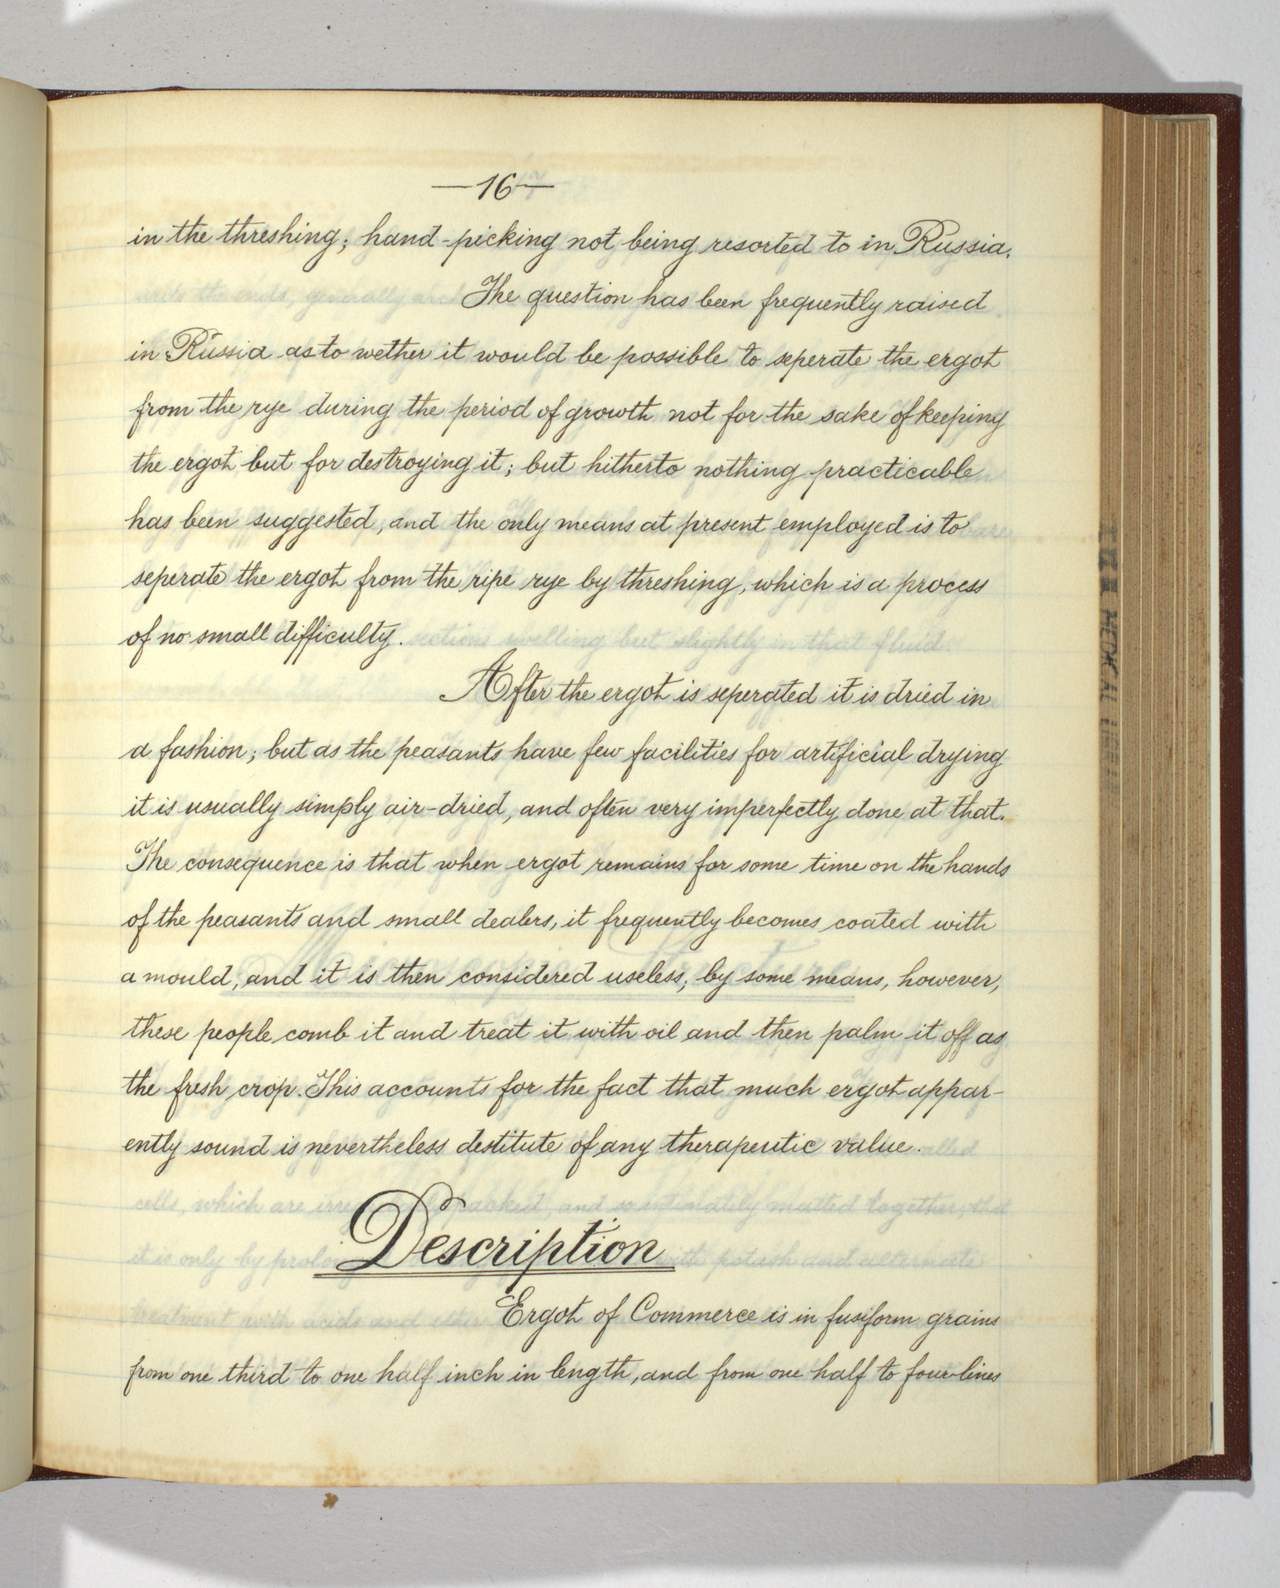 —16—
in the threshing; hand-picking not being resorted to in Russia.
The question has been frequently raised
in Russia as to wether it would be possible to seperate the ergot
from the rye during the period of growth not for the sake of keeping
the ergot but for destroying it; but hitherto nothing practicable
has been suggested, and the only means at present employed is to
seperate the ergot from the ripe rye by threshing, which is a process
of no small difficulty.
After the ergot is seperated it is dried in
a fashion; but as the peasants have few facilities for artificial drying
it is usually simply air-dried, and often very imperfectly done at that.
The consequence is that when ergot remains for some time on the hands
of the peasants and small dealers, it frequently becomes coated with
a mould, and it is then considered useless; by some means, however,
these people comb it and treat it with oil and then palm it off as
the fresh crop. This accounts for the fact that much ergot appar-
ently sound is nevertheless destitute of any therapeutic value.
Description
Ergot of Commerce is in fusiform grains
from one third to one half inch in length, and from one half to four lines